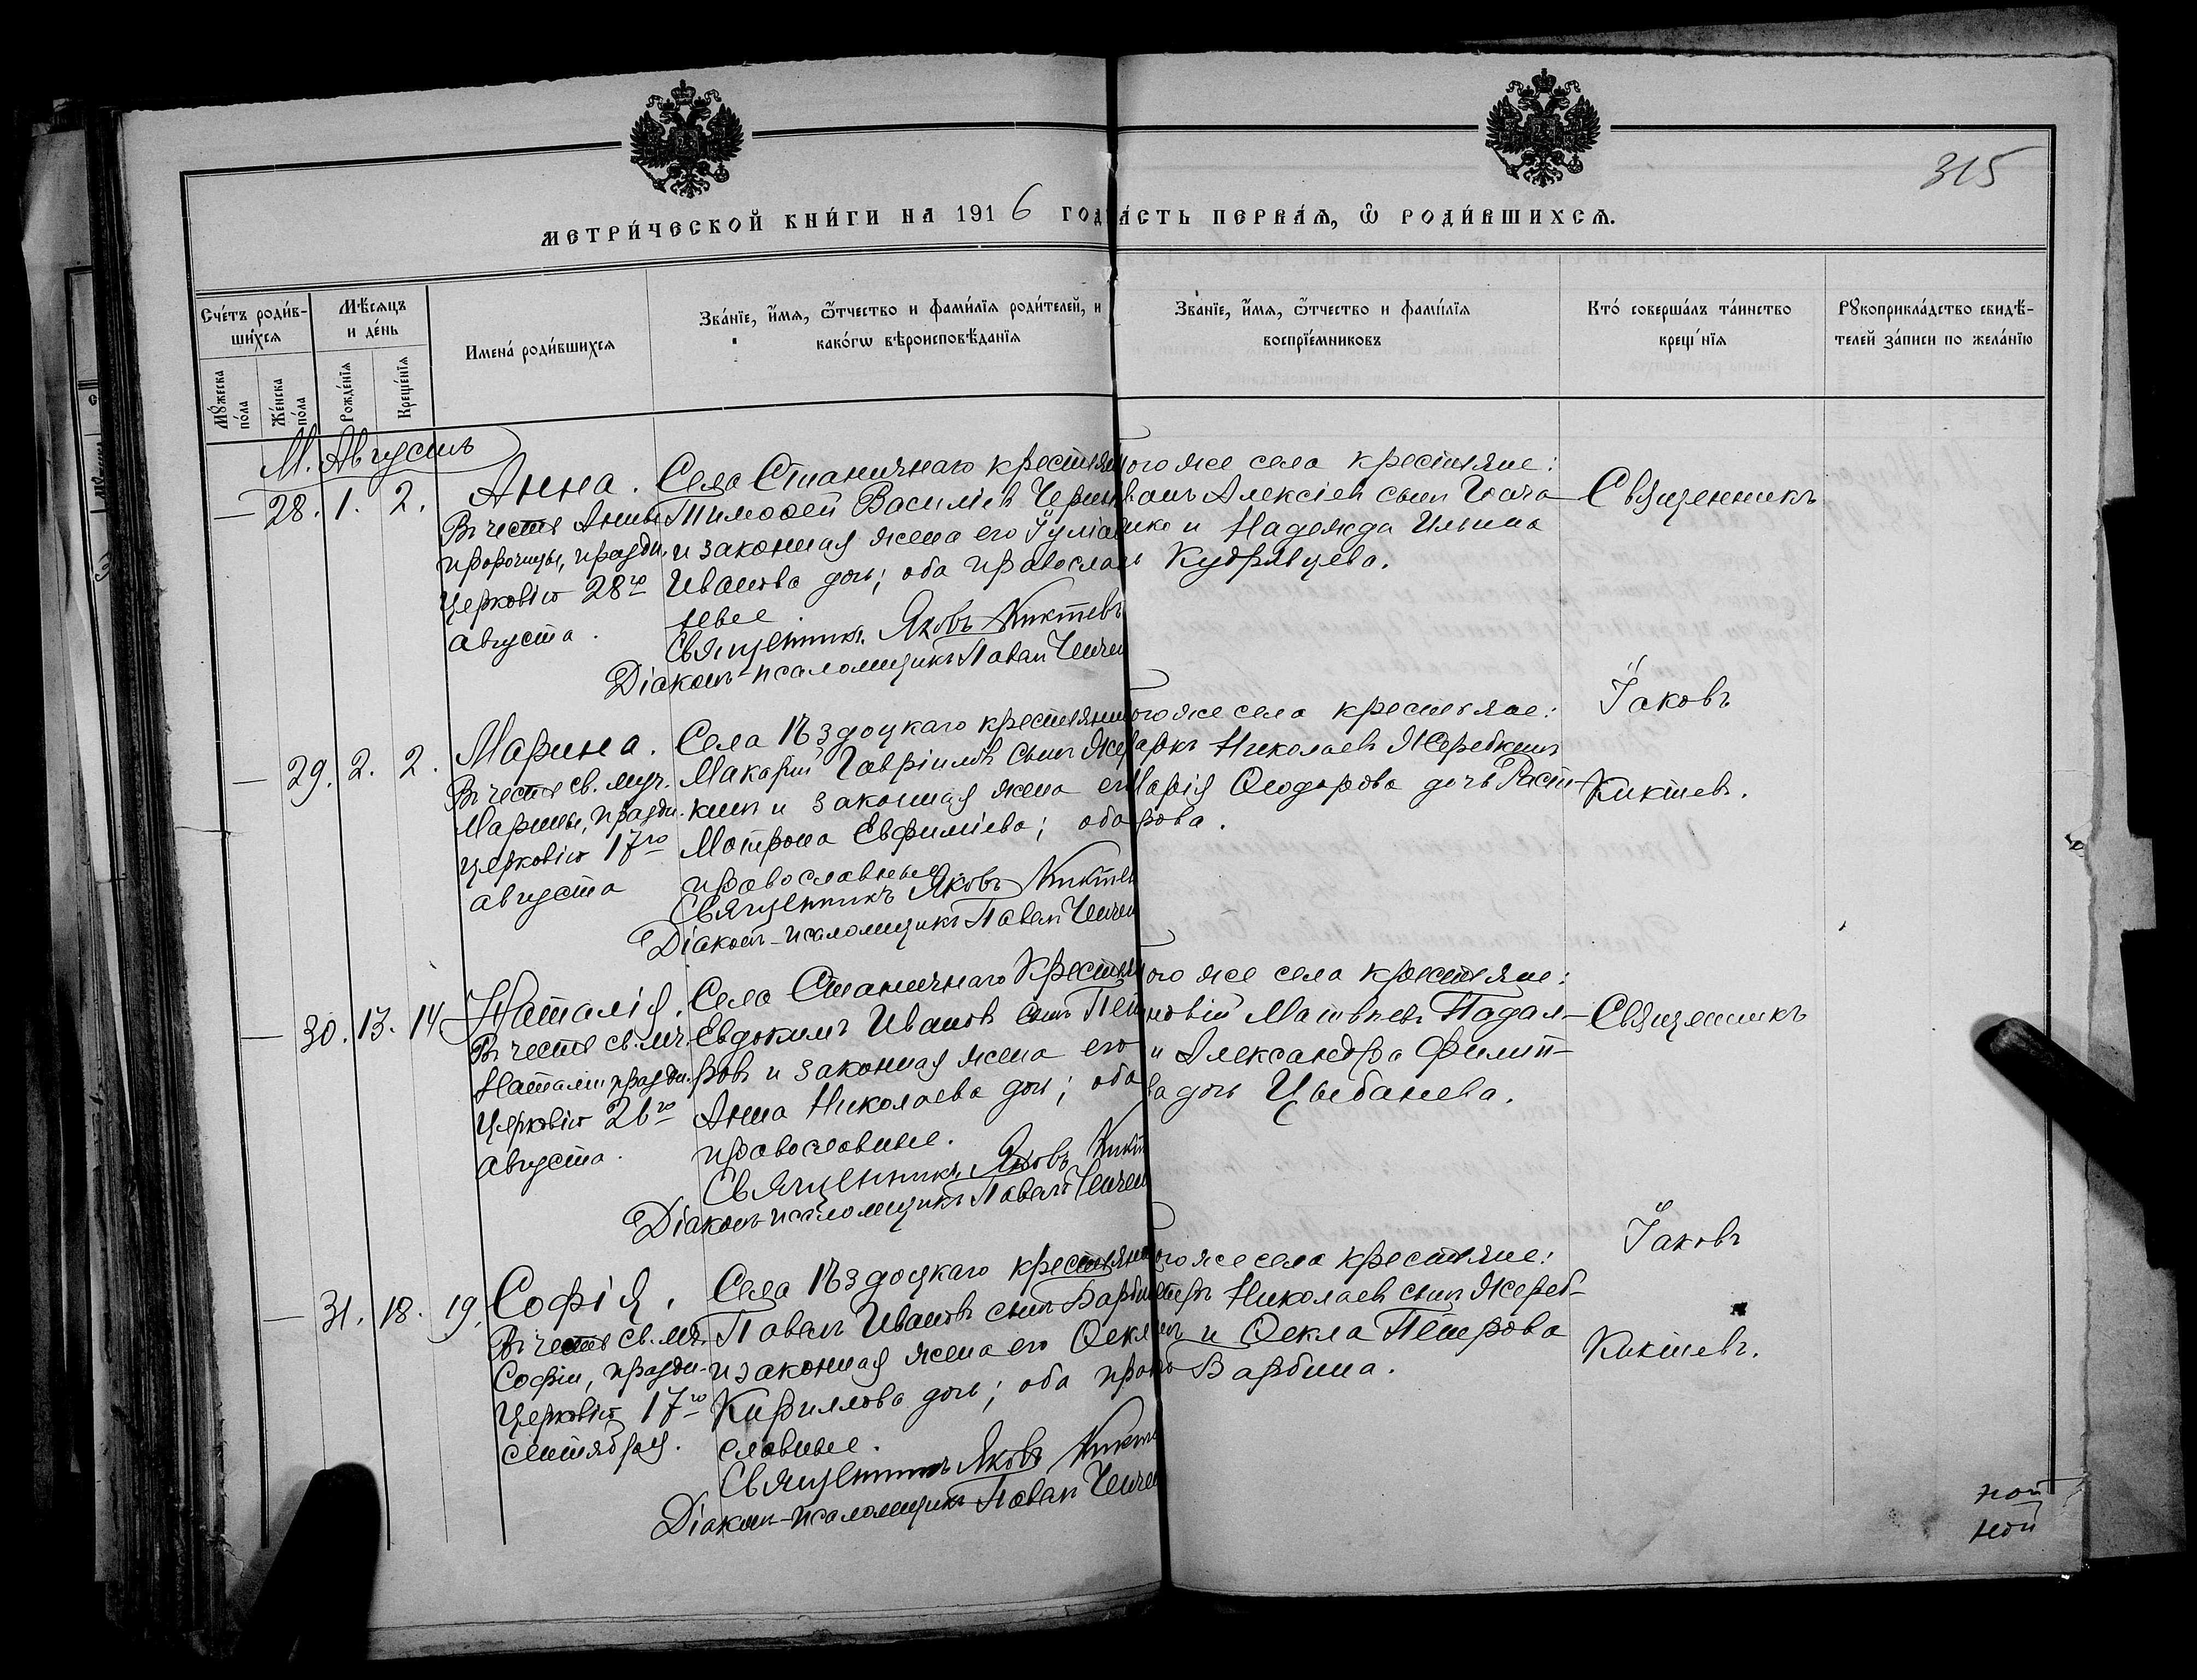 315
МЕТРИ́ЧЕСКОЙ КНИ́ГИ НА 1916 ГОД
А́СТЬ ПЕРВА́Ѧ, Ѡ҆ РОДИ́ВШИХСѦ.
Сче́тъ роди́в-
ши́хсѧ
Мꙋ́жеска
по́ла
Же́нска
по́ла
Мѣ́сѧцъ
и де́нь
Рожде́нїѧ
Креще́нїѧ
Имена́ роди́вшихсѧ
Зва́нїе, и҆́мѧ, ѻ҆́тчество и фами́лїѧ роди́телей, и
како́гѡ вѣроисповѣ́данїѧ
Зва́нїе, и҆́мѧ, ѻ҆́тчество и фами́лїѧ
воспрїе́мниковъ
Кто́ соверша́лъ та́инство
креще́нїѧ
Рꙋкоприкла́дство свидѣ́-
телей за́писи по жела́нїю
М. Августъ
— 28. 1. 2.
Анна.
Въ честь Анны
пророчицы, праздн.
Церковію 28го
августа.
Села Станичнаго крестьян
Тимоѳей Василіевъ Черни
и законная жена его Іуліа
Иванова дочь; оба православ
ные
Священникъ Яковъ Киктевъ
Діаконъ-псаломщикъ Павелъ
ого же села крестьяне:
ванъ Алексіевъ сынъ
и Надежда Ильина
Кудрявцева.
Священникъ
— 29. 2. 2.
Марина.
Въ честь св. муч.
Марины, праздн.
Церковію 17го
августа
Села Ѣздоцкаго крестьянин
Макарій Гавріиловъ сынъ Жер
кин и законная жена ег
Матрона Евфиміева; оба
православные
Священникъ Яковъ Киктев
Діаконъ-псаломщикъ Павелъ
ого же села крестьяне:
аркъ Николаевъ Жеребкинъ
Марія Ѳеодорова дочь
рова.
Іаковъ
Киктевъ.
— 30. 13. 14
Наталія.
Въ честь св. мч.
Наталіи праздн.
Церковію 26го
августа.
Села Станичнаго Крестьян
Евдокимъ Ивановъ сынъ Пет
ровъ и законная жена его
Анна Николаева дочь; оба
православные.
Священникъ Яковъ Кикт
Діаконъ-псаломщикъ Павелъ
ого же села крестьяне:
новій Матвѣевъ Падал-
и Александра Филип-
ва дочь Цыбанева.
Священникъ
— 31. 18. 19.
Софія.
Въ честь св. мч.
Софіи, праздн.
Церковію 17го
сентября.
Села Ѣздоцкаго крестьяни
Павелъ Ивановъ сынъ Варби
и законная жена его Ѳекл
Кириллова дочь; оба право
славные.
Священникъ Яковъ Кикте
Діаконъ-псаломщикъ Павелъ
ого же села крестьяне:
етръ Николаевъ сынъ Жереб-
и Ѳекла Петрова
Варбина.
Іаковъ
Киктевъ.
ной
ной